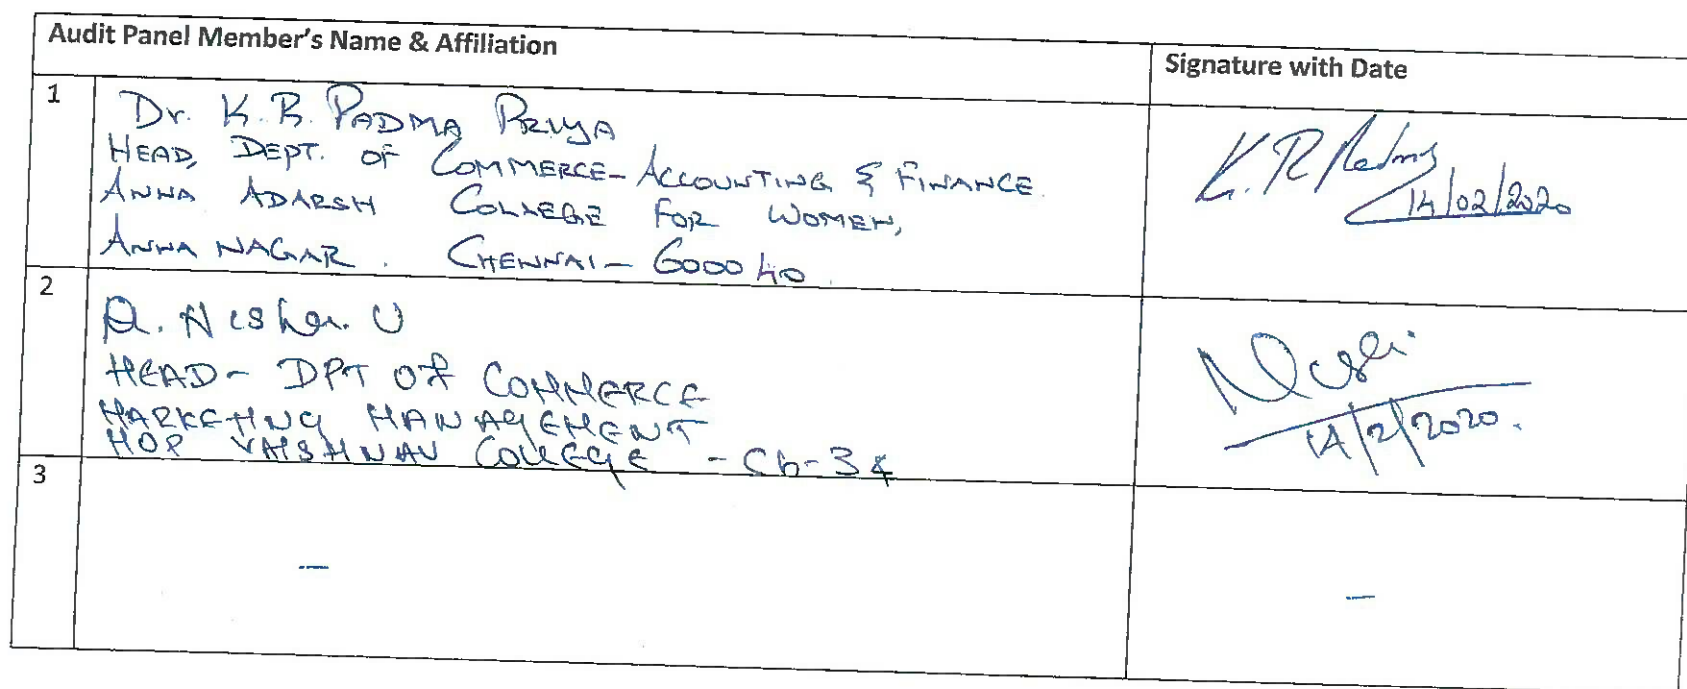 Audit Panel Member's Name & Affiliation
Signature with Date
1
Dr. K. R. PADMA PRIYA
HEAD, DEPT. OF COMMERCE-ACCOUNTING & FINANCE.
ANNA ADARSH COLLEGE FOR WOMEN,
ANNA NAGAR. CHENNAI- 600040.
K. R. Padma
14/02/2020
2
Dr. Nisha. U
HEAD- DPT OF COMMERCE
MARKETING MANAGEMENT
MOP VAISHNAV COLLEGE -Ch-34
14/2/2020.
3
-
-